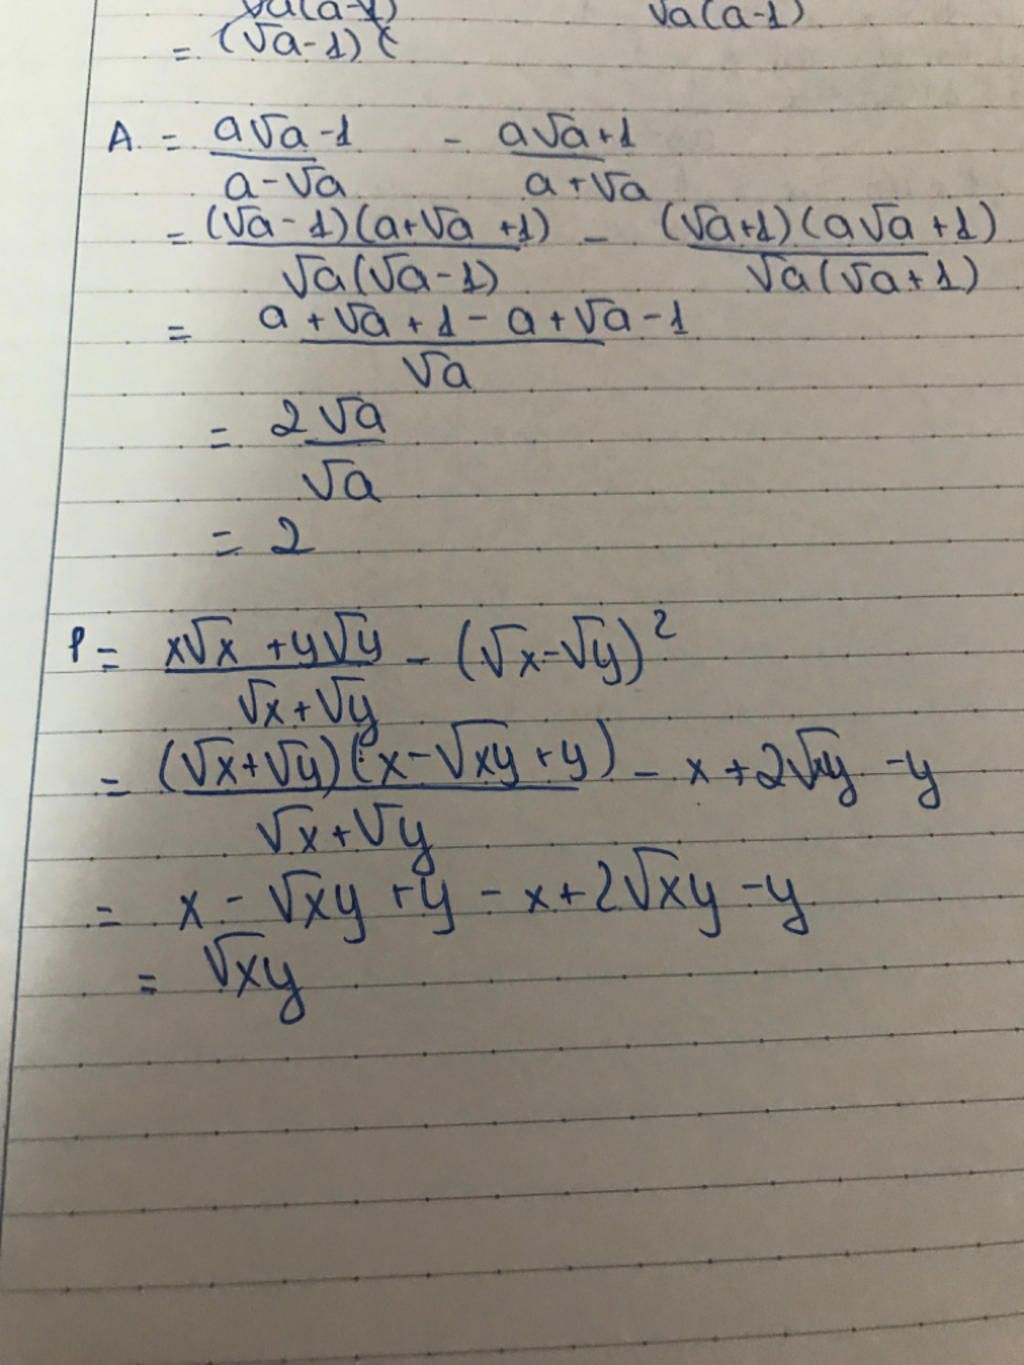 √a(a-1) √a(a-1)
= (√a-1)(
A = a√a-1 - a√a+1
a-√a a+√a
= (√a-1)(a+√a+1) - (√a+1)(a√a+1)
√a(√a-1) √a(√a+1)
= a+√a+1-a+√a-1
√a
= 2√a
√a
= 2
P = x√x+y√y - (√x-√y)²
√x+√y
= (√x+√y)(x-√xy+y) - x+2√xy-y
√x+√y
= x-√xy+y-x+2√xy-y
= √xy